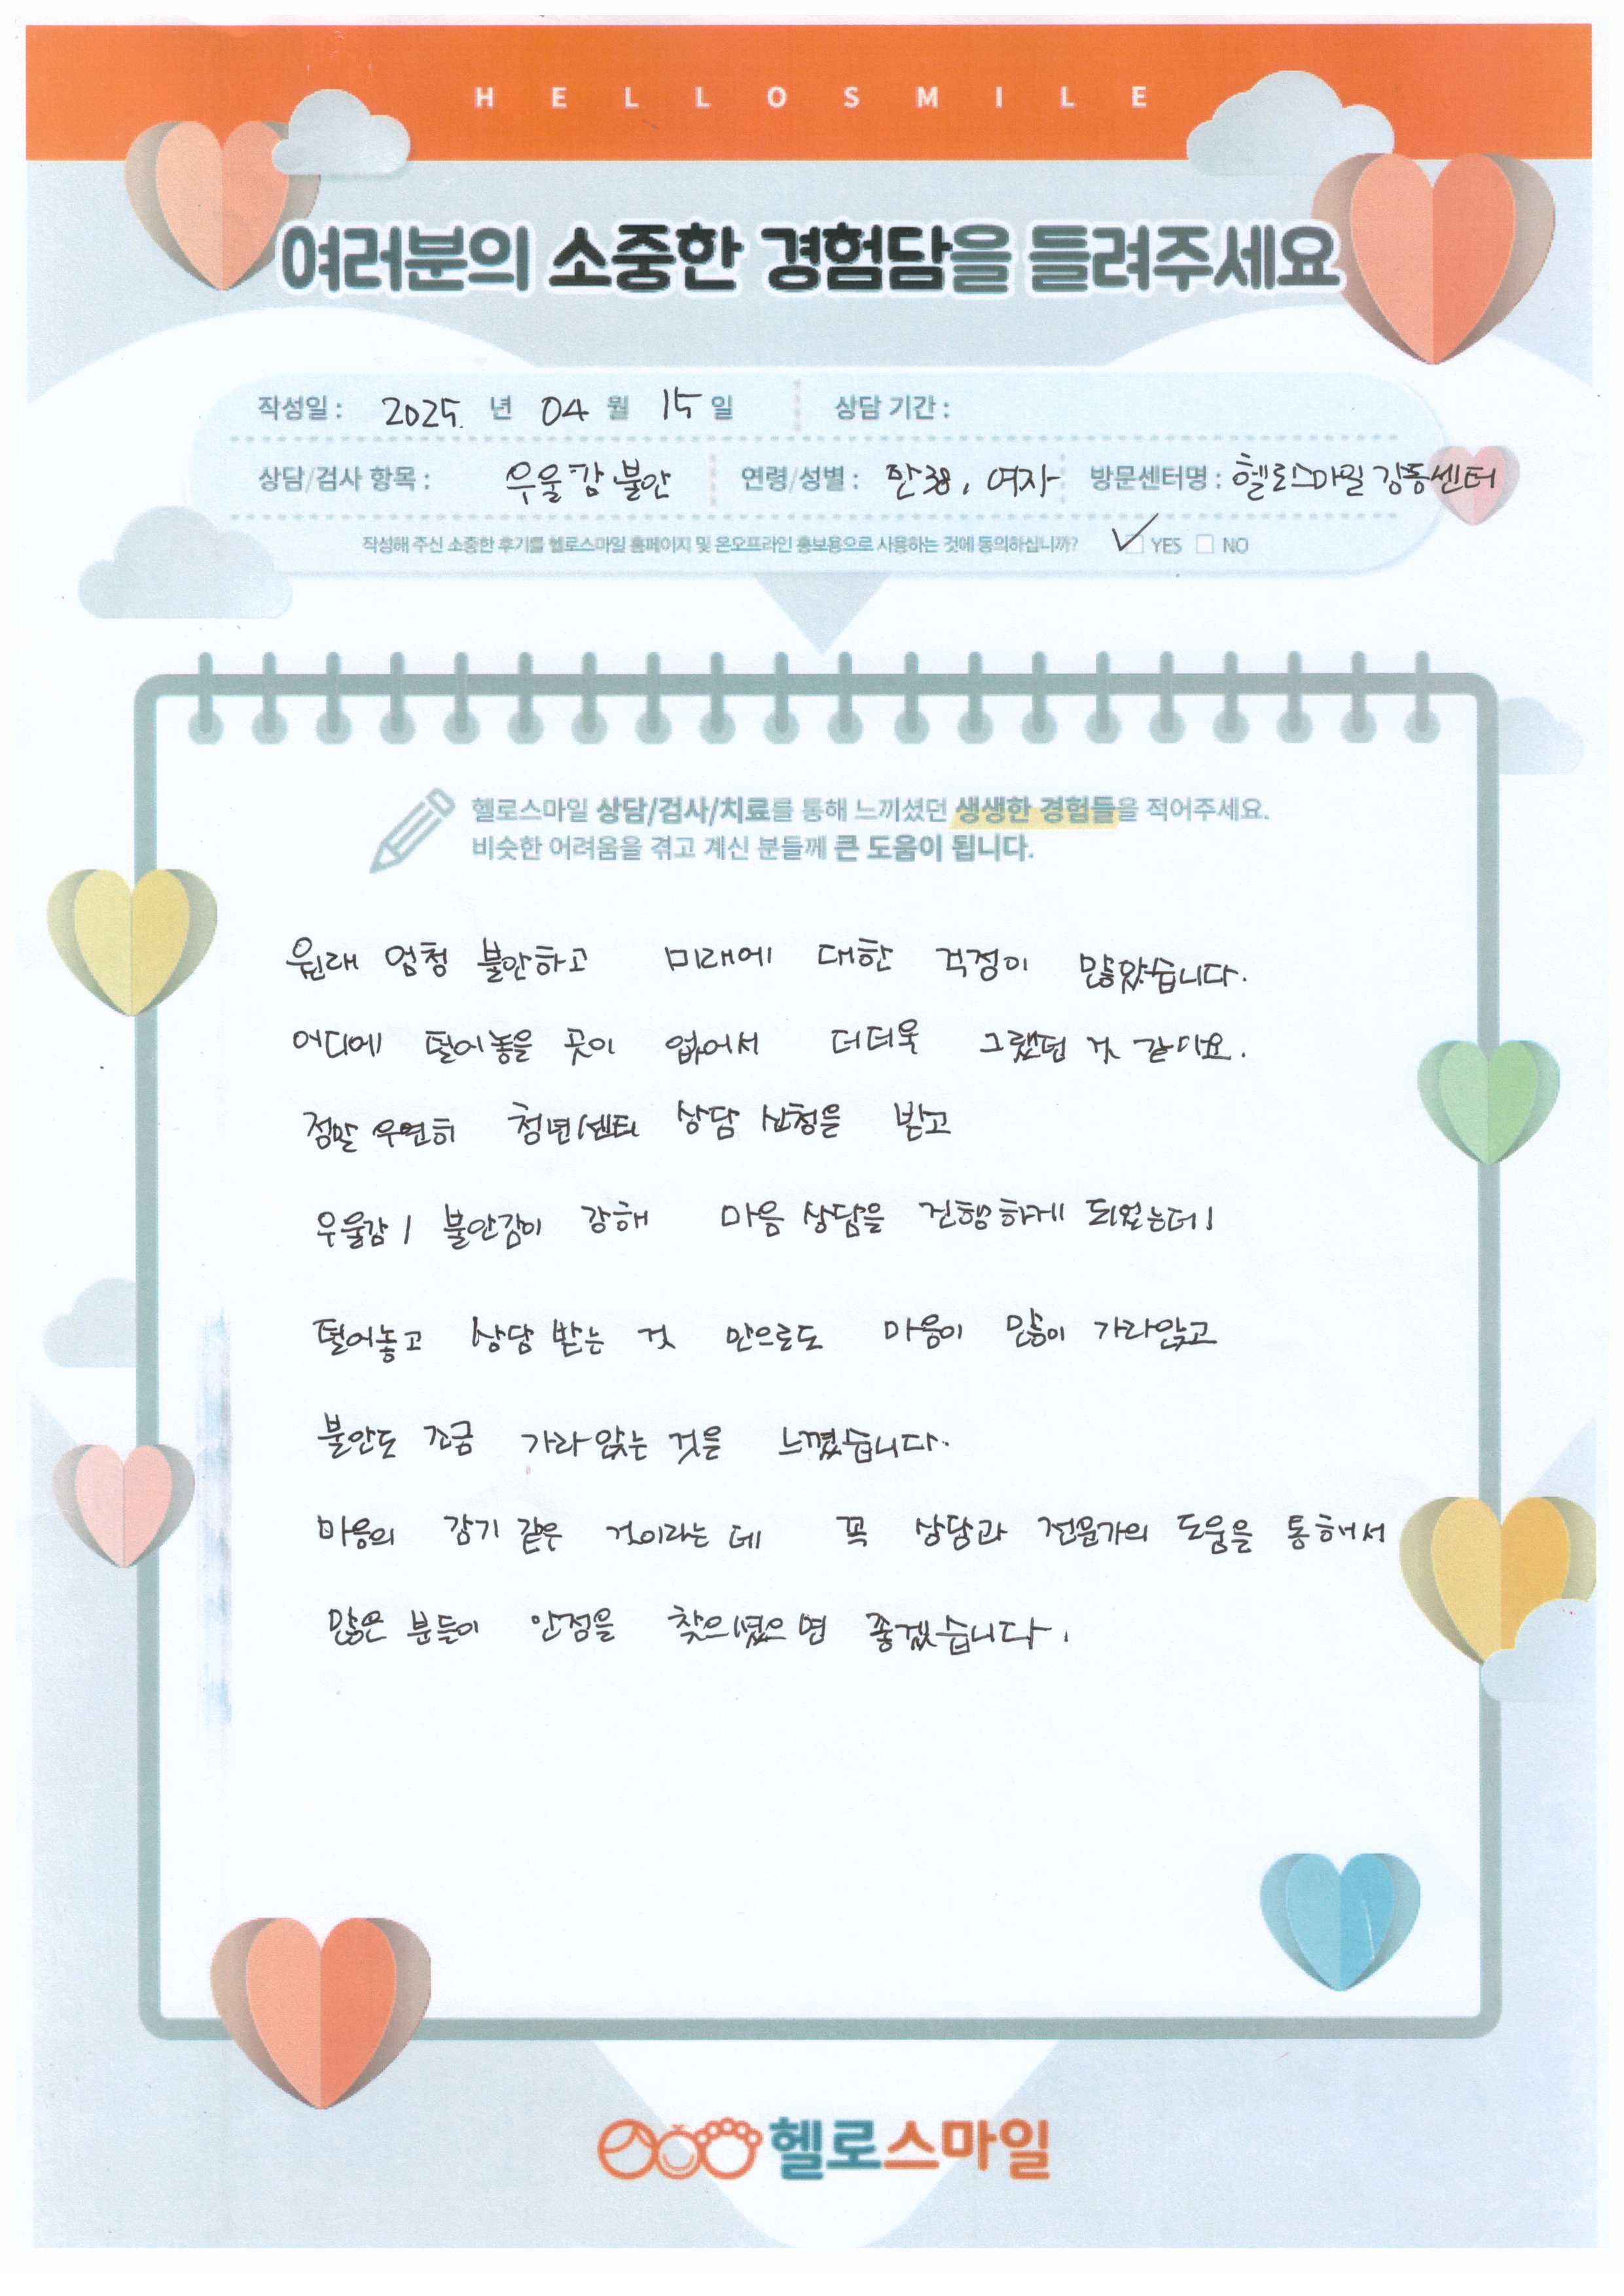 HELLOSMILE
여러분의 소중한 경험담을 들려주세요
작성일 : 2025. 년 04 월 15 일 상담 기간 :
상담/검사 항목 : 우울감 불안 연령/성별 : 만38, 여자 방문센터명 : 헬로스마일 강동센터
작성해 주신 소중한 후기를 헬로스마일 홈페이지 및 온오프라인 홍보용으로 사용하는 것에 동의하십니까? ✓ YES □ NO
헬로스마일 상담/검사/치료를 통해 느끼셨던 생생한 경험들을 적어주세요.
비슷한 어려움을 겪고 계신 분들께 큰 도움이 됩니다.
원래 엄청 불안하고 미래에 대한 걱정이 많았습니다.
어디에 털어놓을 곳이 없어서 더더욱 그랬던 것 같아요.
정말 우연히 청년센터 상담 신청을 받고
우울감, 불안감이 강해 마음 상담을 진행하게 되었는데,
털어놓고 상담 받는 것 만으로도 마음이 많이 가라앉고
불안도 조금 가라앉는 것을 느꼈습니다.
마음의 감기 같은 것이라는 데 꼭 상담과 전문가의 도움을 통해서
많은 분들이 안정을 찾으셨으면 좋겠습니다.
헬로스마일